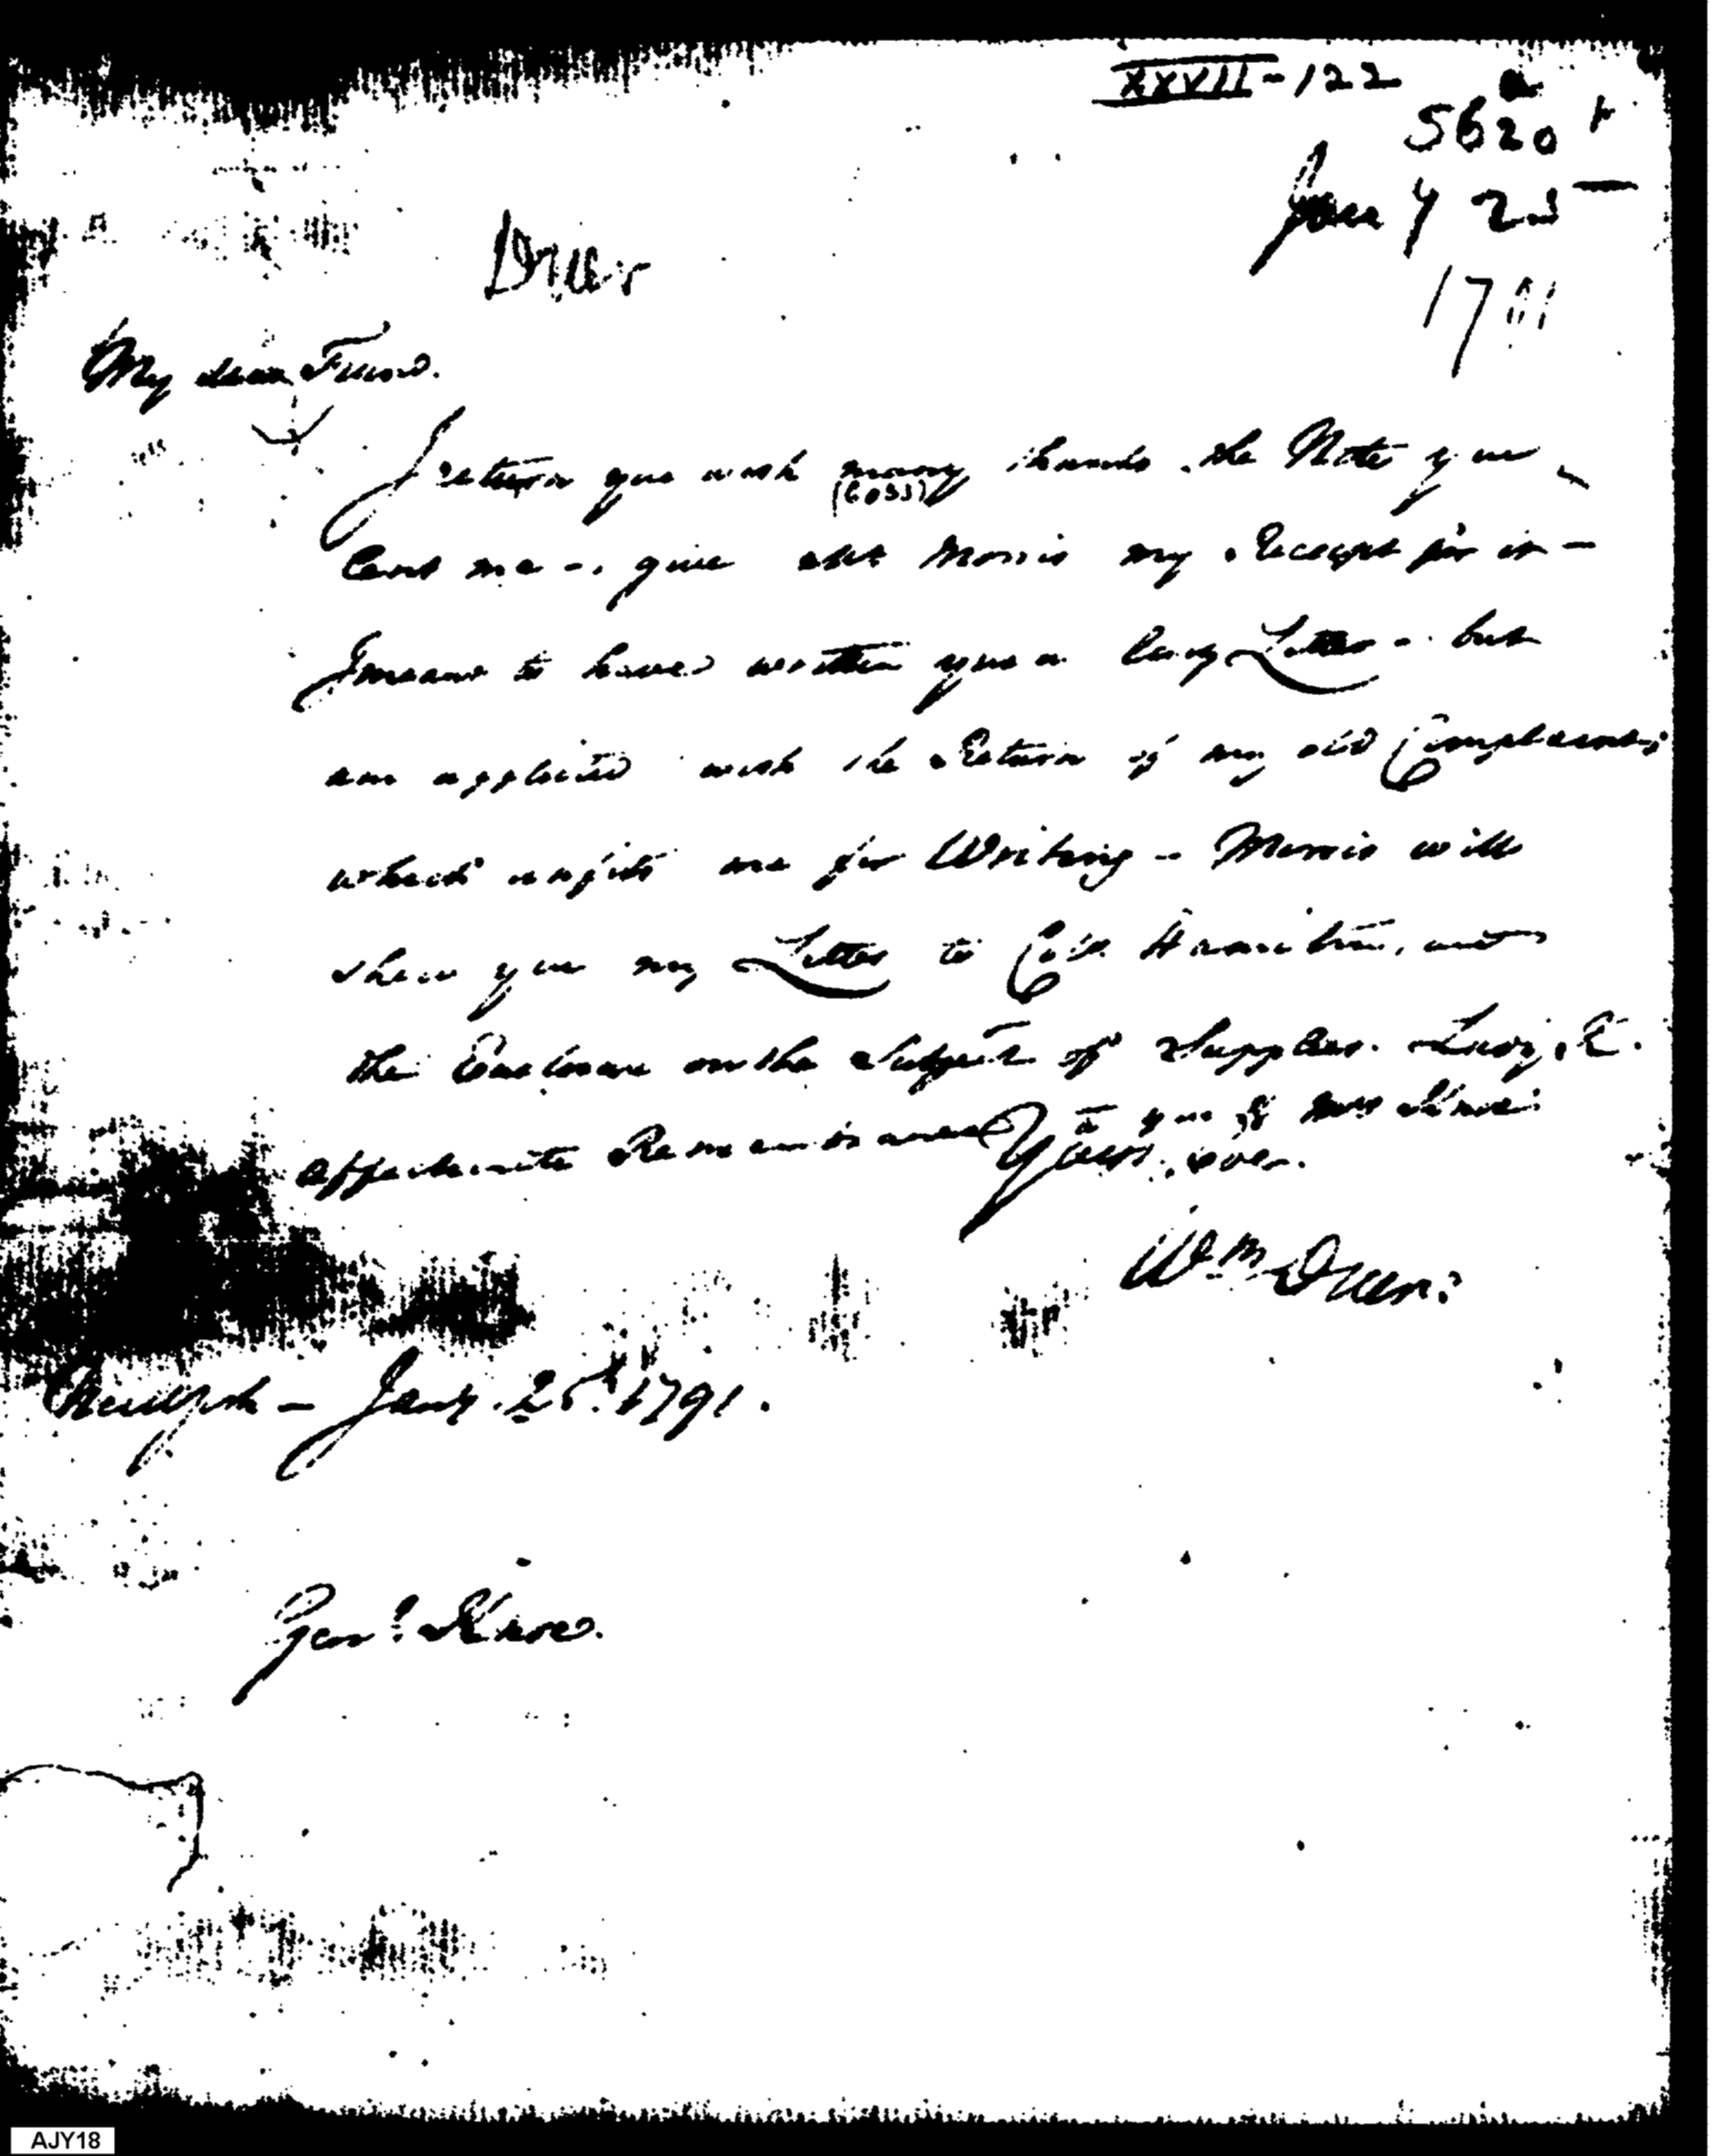 XXVII-122
5620
Jany 25
17
Duer
My dear Friend.
I return you with many thanks the Note you
(6033)
Lent me -. give Mr Morris my Receipt for it -
I meant to have written you a long Letter - but
am afflicted with the Return of my old Complaints,
which unfits me for Writing - Morris will
shew you my Letter to Col. Hamilton, and
the Enclosure on the Subject of Supplies. Lady K.
affectionate Remembrance to you & Mrs Knox.
Yours,
Wm Duer.
Jany. 25th 1791.
Genl. Knox.
AJY18